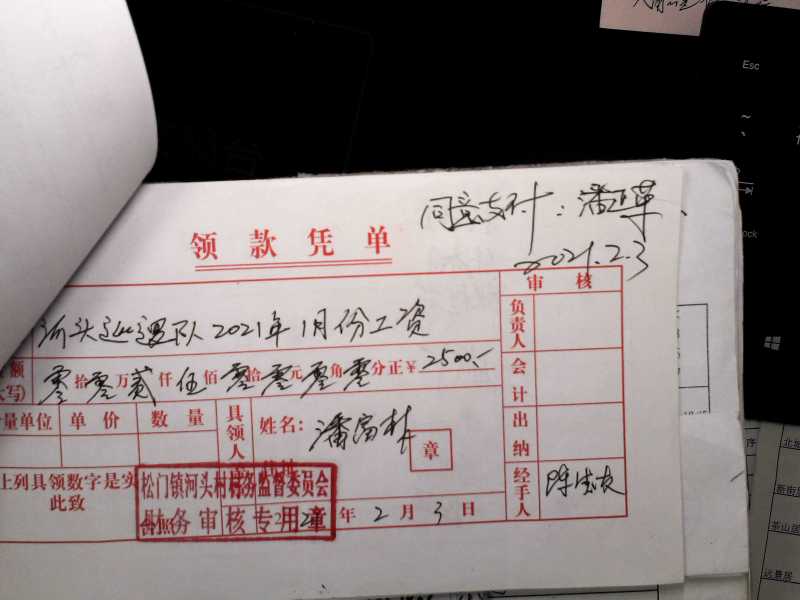 同意支付：潘卫革
2021.2.3
领款凭单
审核
河头巡逻队2021年1月份工资
负责人
额
大写)
零拾零万贰仟伍佰零拾零元零角零分正￥2500.-
会计
计量单位 单价 数量
具领人
姓名：潘富林
章
出纳
上列具领数字是实
此致
松门镇河头村村务监督委员会
财务审核专用章
年2月3日
经手人
Esc
ock
序
茶山居
远景居